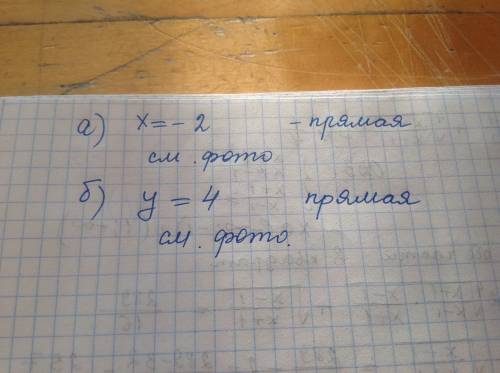 а) x = - 2 - прямая
см. фото
б) y = 4 прямая
см. фото.